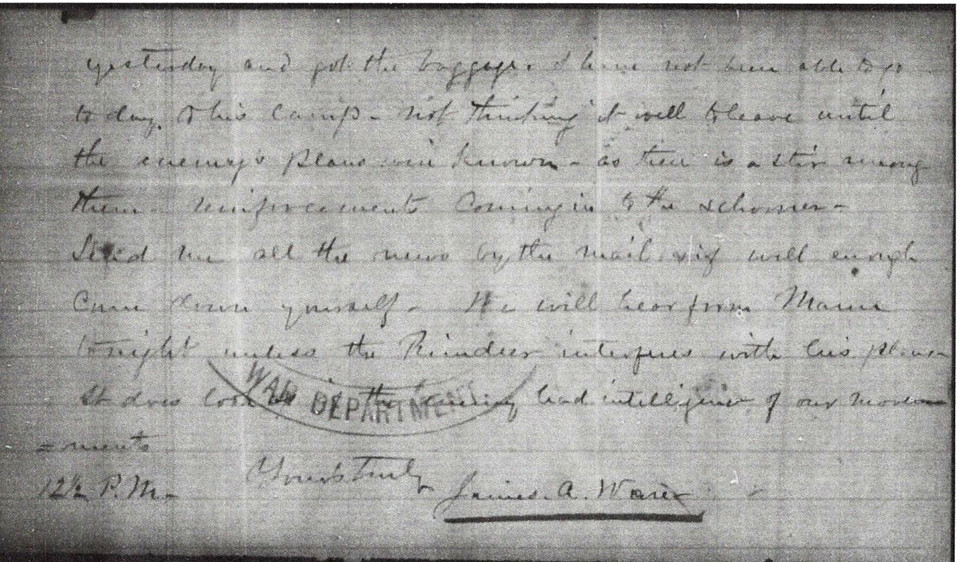 yesterday and got the baggage. I have not been able to go
to day to his Camp - not thinking it well to leave until
the enemy's plans were known - as there is a stir among
them - reinforcements Coming in to the schooner -
Send me all the news by the mail & if well enough
Come down yourself - We will hear from
tonight unless the Reindeer interferes with his plans
It does look as if the enemy had intelligence of our move
=ments
12½ P.M. Yours truly James. A.
WAR DEPARTMENT